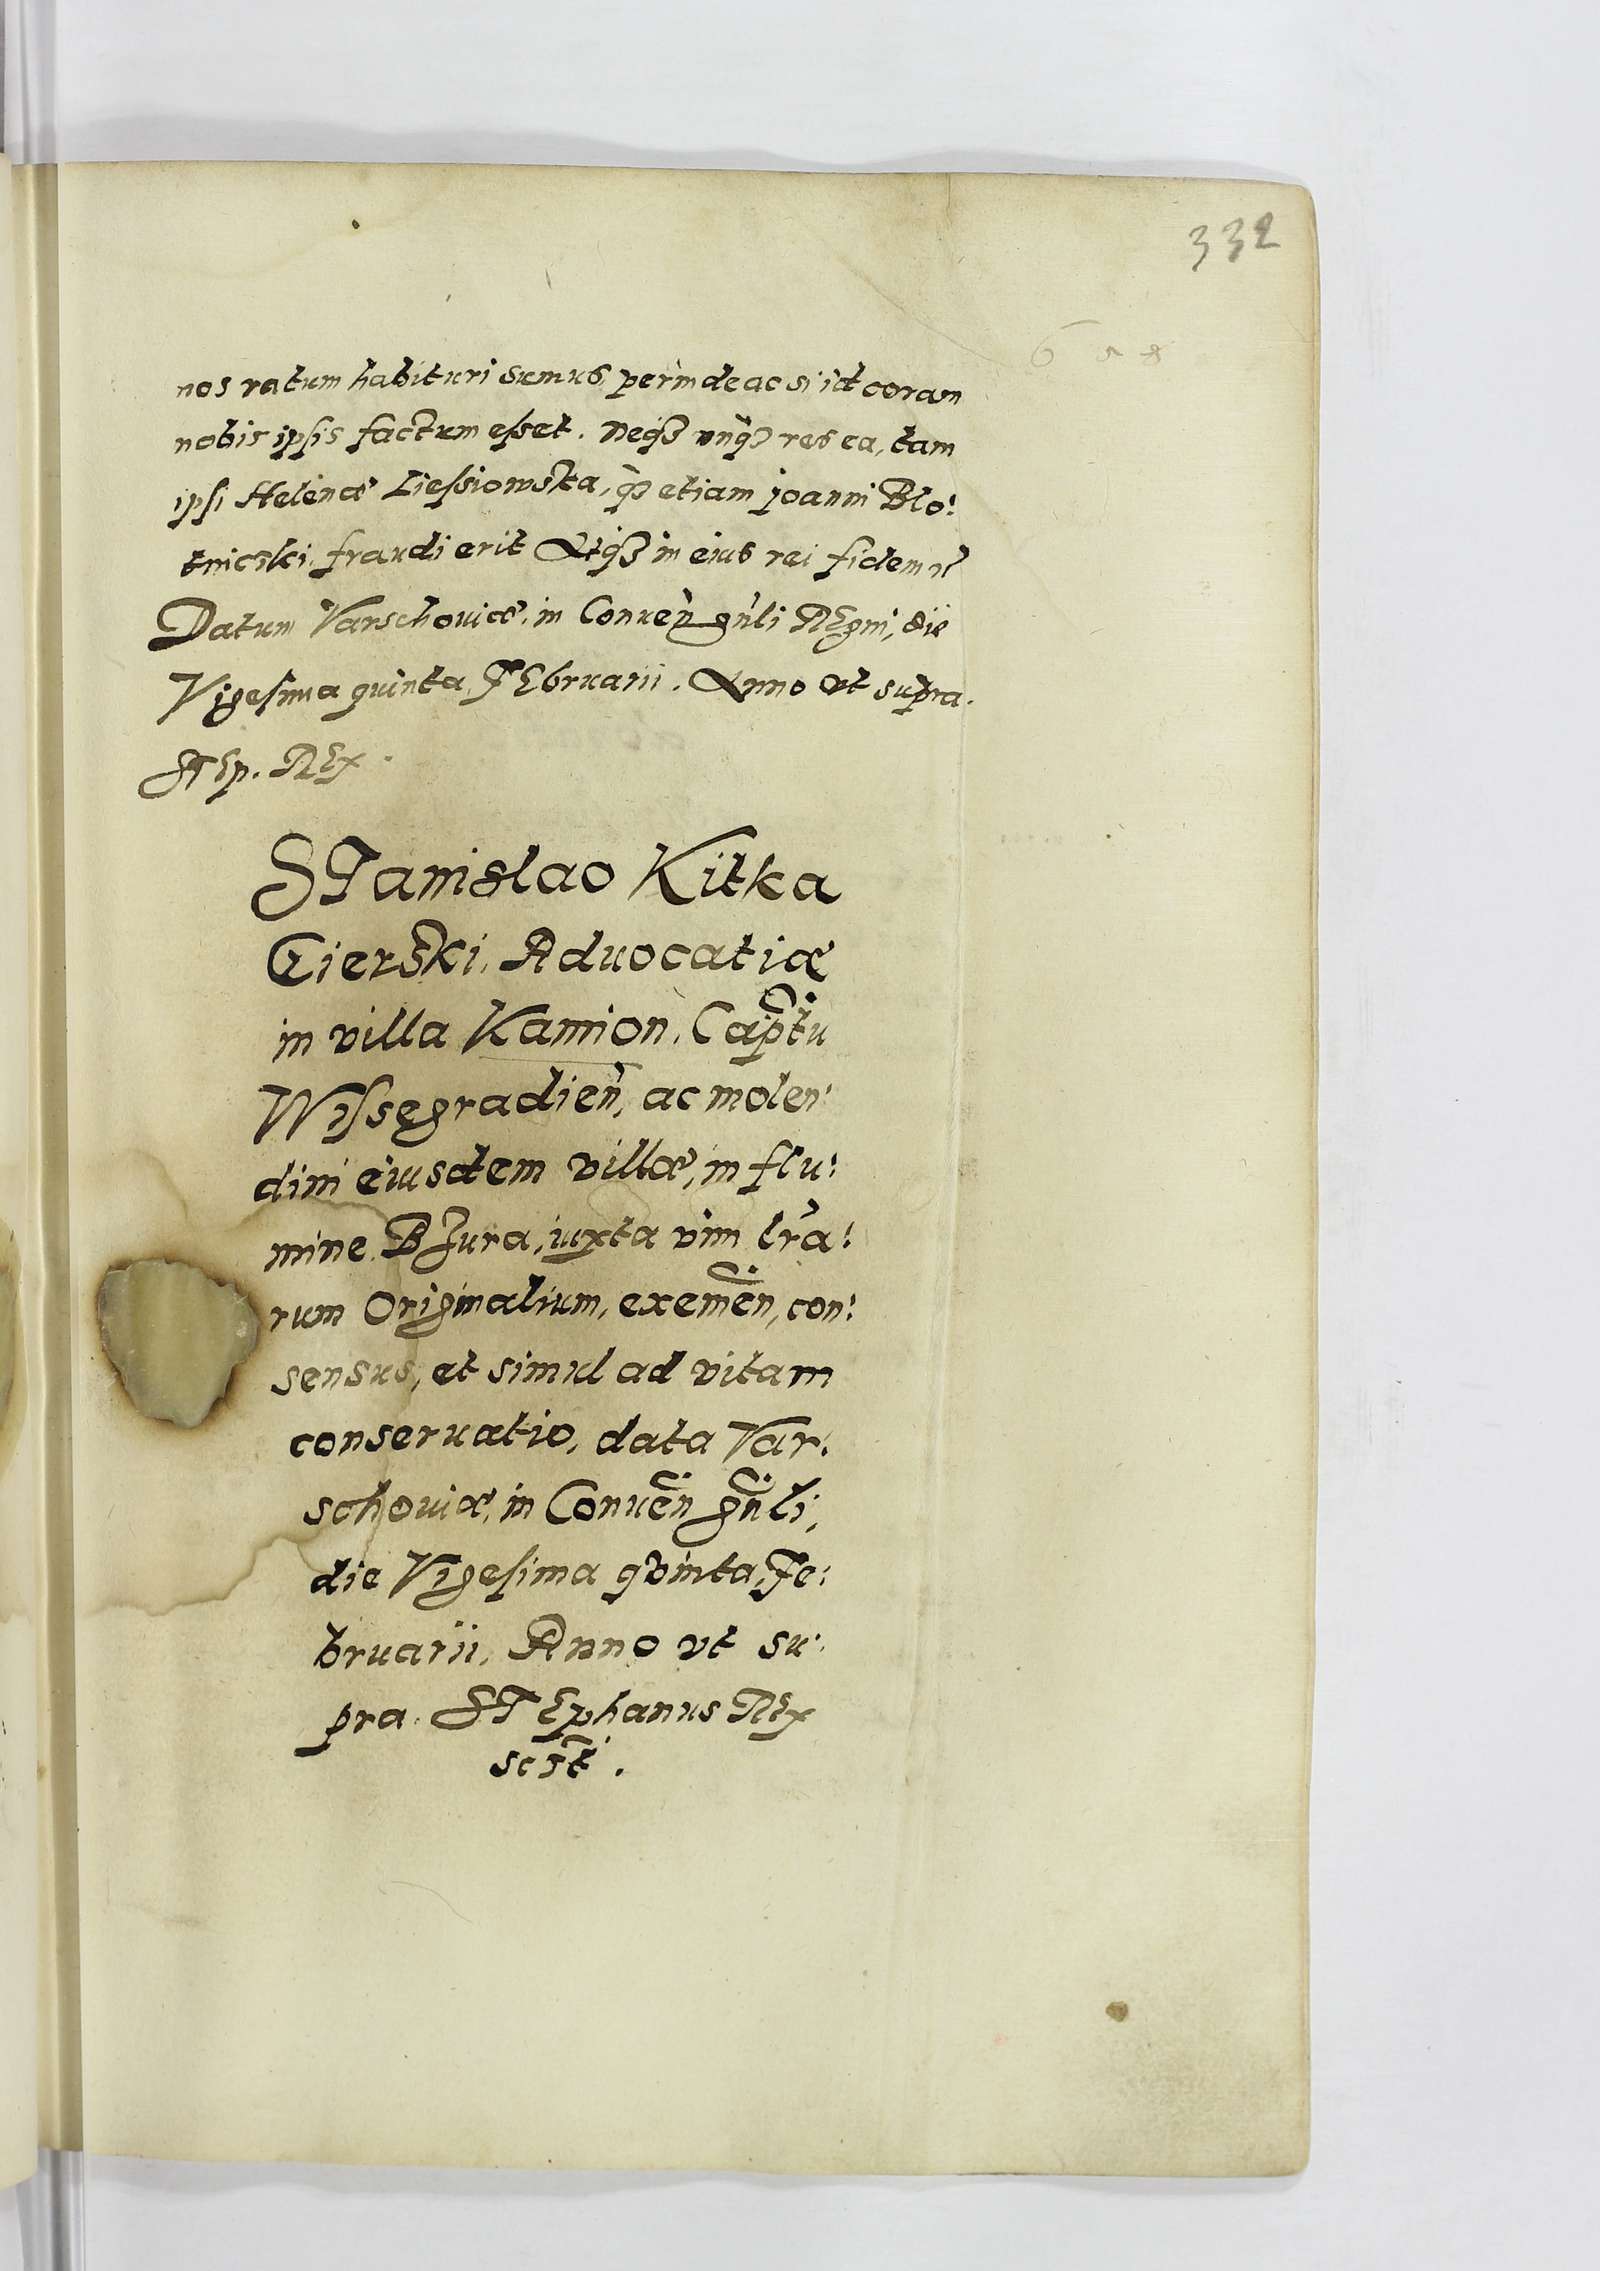 332
nos ratum habituri sumus, perinde ac si id coram
nobis ipsis factum esset. Neqз vnqз res ea, tam
ipsi Helenæ Liessiowska, qз etiam joanni Blo:
tnicski, fraudi erit Atqз in eius rei fidem
Datum Varschouiæ, in Conuen gnli REgni, die
Vigesima quinta FEbruarii. Anno vt supra.
STEp. REx.
STanislao Kitka
Cierski, Aduocatiæ
in villa Kamion, Captu
Wissegradien, ac molen:
dini eiusdem villæ, in flu:
mine BZura, iuxta vim lra:
rum Originalium, exemen, con:
sensus, et simul ad vitam
conseruatio, data Var:
schouiæ, in Conuen gnli,
die Vigesima qvinta, Fe:
bruarii, Anno vt su:
pra. STEphanus REx
scst.